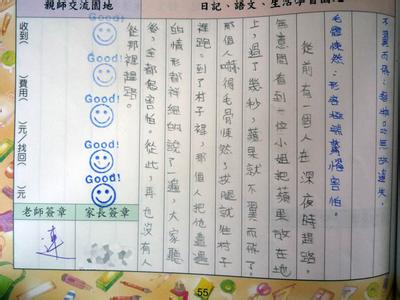 日記、語文、生活學習園地
不翼而飛:無故遺失。
毛骨悚然:形容極端驚惶害怕。
從前有一個人在深夜時趕路,
無意間看到一位小姐把蘋果放在地
上,過了幾秒,蘋果就不翼而飛了。
那個人嚇得毛骨悚然,拔腿就往村子
裡跑。到了村子裡,那個人把他遭遇
的情形都詳細的說了一遍,大家聽
後,全都很害怕。從此,再也沒有人
從那裡趕路。
親師交流園地
Good!
Good!
Good!
Good!
Good!
收到( )費用( )元/找回( )元
家長簽章
老師簽章
連
55